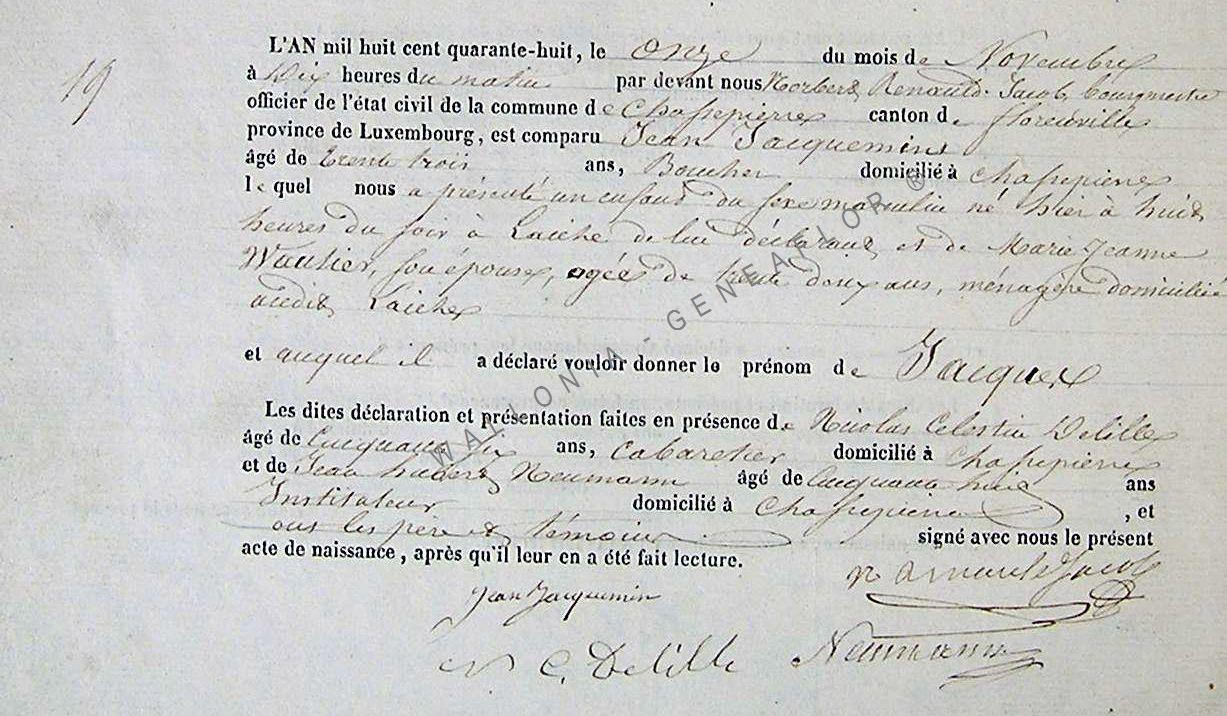 19
L'AN mil huit cent quarante-huit, le onze du mois de Novembre
à Dix heures du matin par devant nous Norbert Renauld Jacob, bourgmestre
officier de l'état civil de la commune de Chassepierre canton de florenville
province de Luxembourg, est comparu Jean Jacquemin
âgé de trente trois ans, Boucher domicilié à Chassepierre
le quel nous a présenté un enfant du sexe masculin né hier à huit
heures du soir à Laiche de lui déclarant et de Marie Jeanne
Wautier, son épouse, agée de trente deux ans, ménagère domiciliée
audit Laiche
et auquel il a déclaré vouloir donner le prénom de Jacques
Les dites déclaration et présentation faites en présence de Nicolas Celestin Delille
âgé de Cinquante ans, Cabaretier domicilié à Chassepierre
et de Jean hubert Neumann âgé de Cinquante huit ans
Instituteur domicilié à Chassepierre, et
ont les père et témoins signé avec nous le présent
acte de naissance, après qu'il leur en a été fait lecture.
Jean Jacquemin
N C Delille Neumann
WALLONIA GENEALOR ®